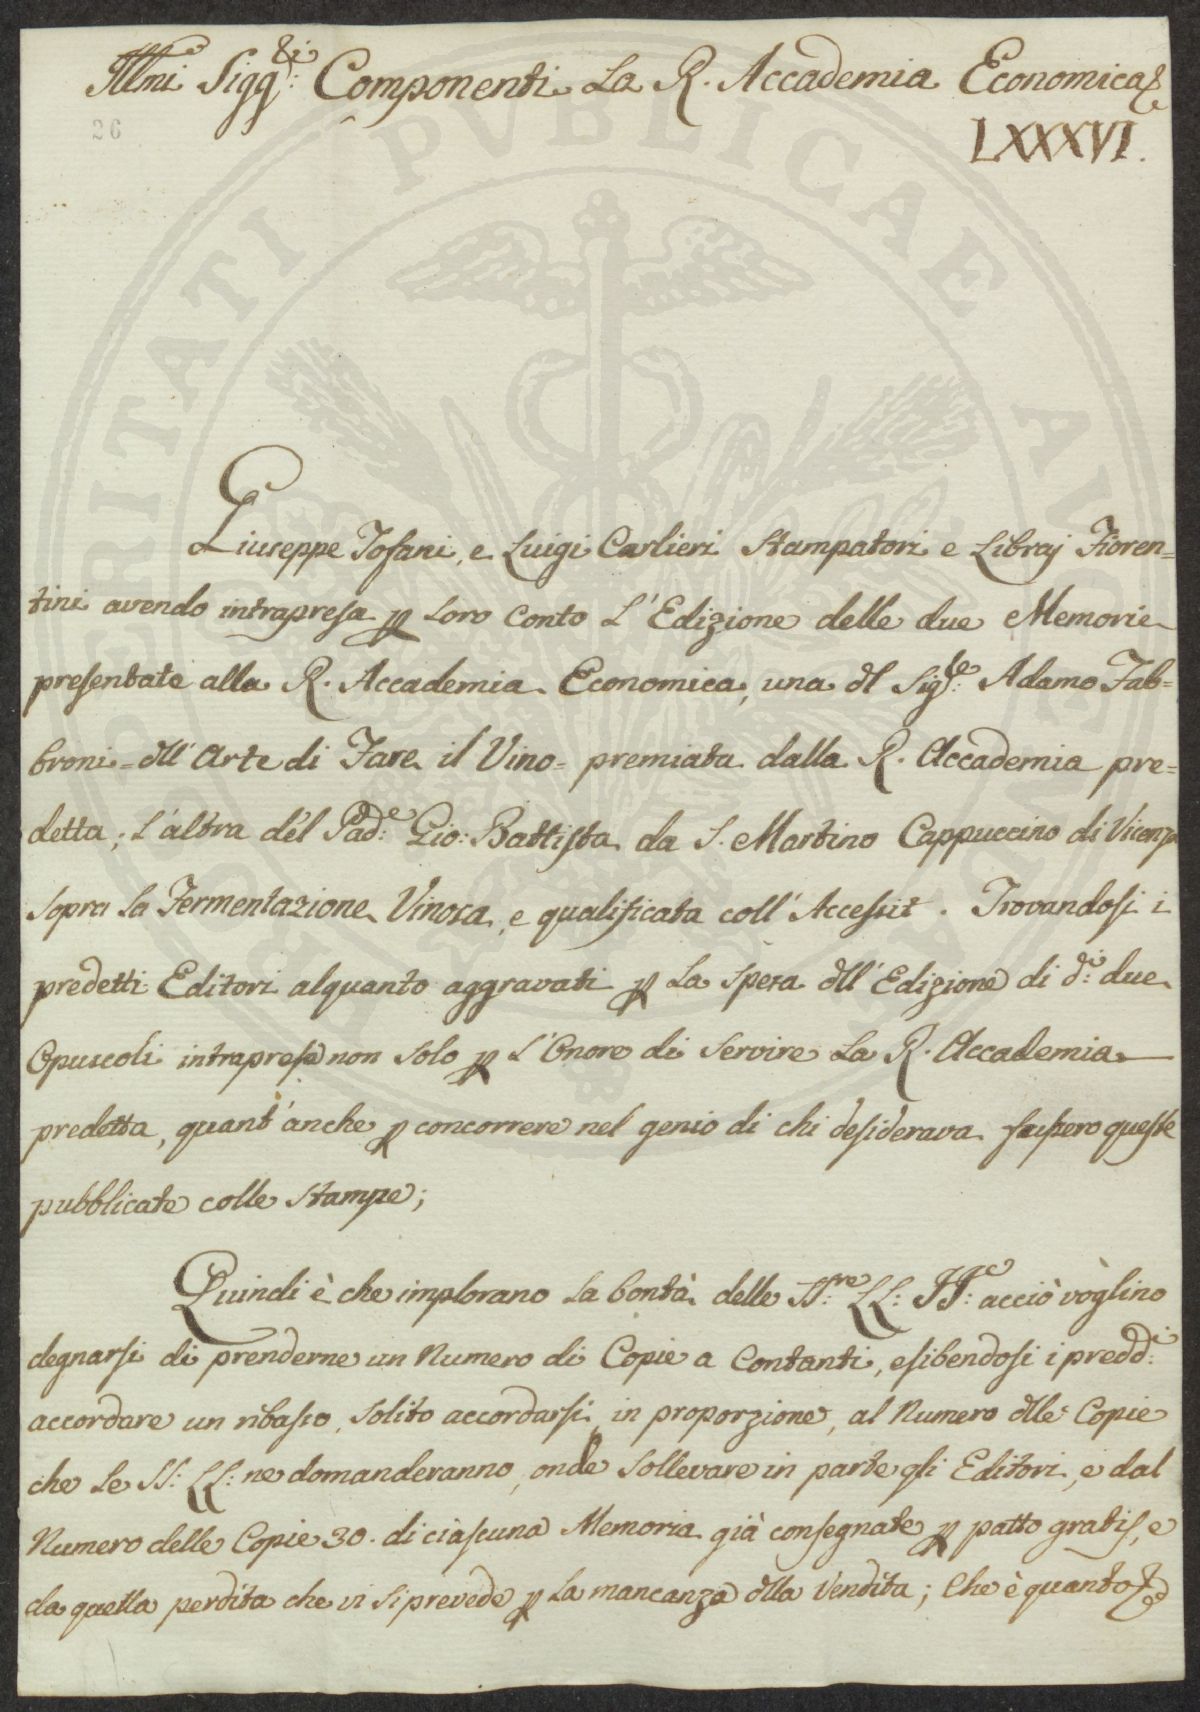 Illmi Sigg:ri Componenti La R. Accademia Economica
26
LXXXVI.
Giuseppe Tofani, e Luigi Carlieri Stampatori e Libraj Fioren=
tini avendo intrapresa p Loro Conto L'Edizione delle due Memorie
presentate alla R. Accademia Economica, una dl Sig:re Adamo Fab=
broni = dll'Arte di Fare il Vino = premiata dalla R. Accademia pre=
detta; L'altra del Pad:e Gio: Battista da S. Martino Cappuccino di Vicenza
sopra la Fermentazione Vinosa, e qualificata coll'Accessit. Trovandosi i
predetti Editori alquanto aggravati p La Spesa dll'Edizione di d:i due
Opuscoli intrapresa non solo p L'Onore di Servire La R. Accademia
predetta, quant'anche p concorrere nel genio di chi desiderava fussero queste
pubblicate colle Stampe;
Quindi è che implorano La bontà delle SS:rie LL: Ill:me acciò voglino
degnarsi di prenderne un Numero di Copie a Contanti, esibendosi i predd:i
accordare un ribasso, solito accordarsi, in proporzione, al Numero dlle Copie
che Le SS: LL: ne domanderanno, onde Sollevare in parte gli Editori, e dal
Numero delle Copie 30. di ciascuna Memoria già consegnate p patto gratis, e
da quella perdita che vi si prevede p La mancanza dlla Vendita; Che è quanto
PROSPERITATI PVBLICAE AVGENDAE